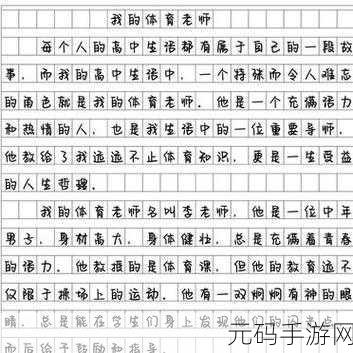 我的体育老师
每个人的高中生活都有属于自己的一段故
事，而我的高中生活中，一个特殊而令人难忘
的角色就是我的体育老师。他是一个充满活力
和热情的人，也是我生活中的一位重要导师。
他教给了我远远不止体育知识，更是一生受益
的人生哲理。
我的体育老师名叫李老师，他是一位中年
男子，身材高大，身体健壮，总是充满着青春
的活力。他教授的是体育课，但他的教育远不
仅限于操场上的运动。他有一双炯炯有神的眼
睛，总是能在学生们身上发现他们的闪光点，
而后给予鼓励和指导。
元码手游网